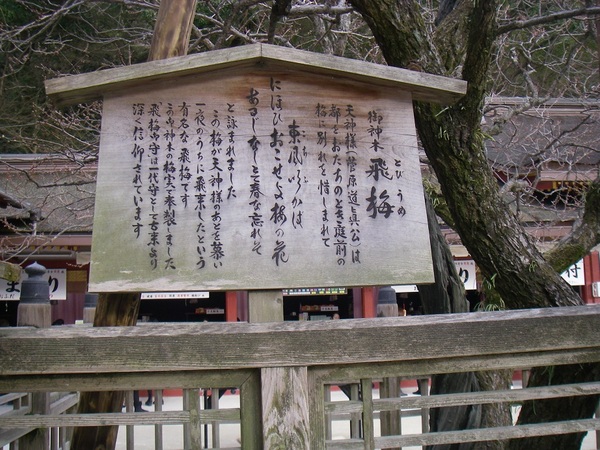 御神木 飛梅
とび うめ
天神様(菅原道真公)は
都をおたちのとき庭前の
梅に別れを惜しまれて
東風吹かば
こち
にほひおこせよ梅の花
あるじなしとて春な忘れそ
と詠まれました
この梅が天神様のあとを慕い
一夜のうちに飛来したという
有名な飛梅です
この御神木の梅実で奉製しました
飛梅御守は一代守として古来より
深く信仰されています